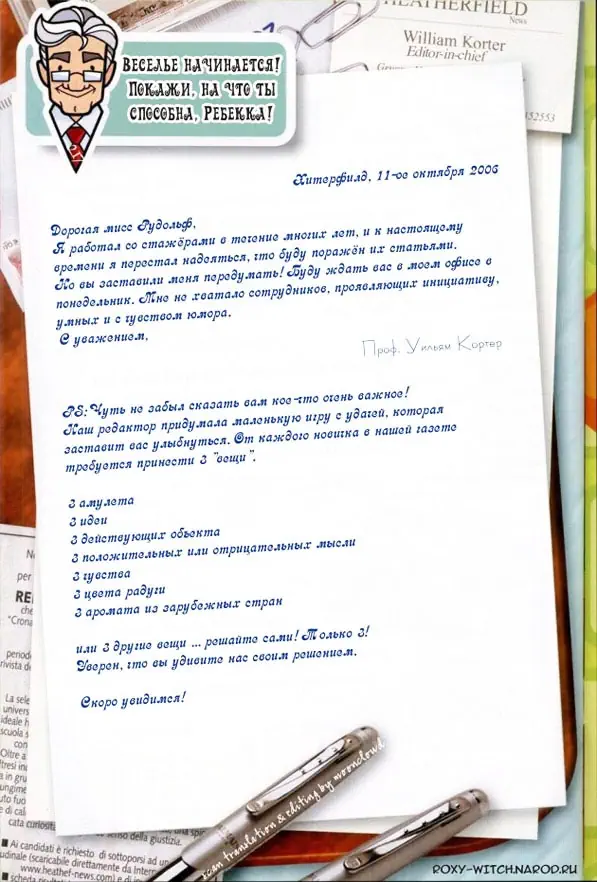 HEATHERFIELD
News
William Korter
Editor-in-chief
ВЕСЕЛЬЕ НАЧИНАЕТСЯ!
ПОКАЖИ, НА ЧТО ТЫ
СПОСОБНА, РЕБЕККА!
Хитерфилд, 11-ое октября 2006
Дорогая мисс Рудольф,
Я работал со стажёрами в течение многих лет, и к настоящему
времени я перестал надеяться, что буду поражён их статьями.
Но вы заставили меня передумать! Буду ждать вас в моем офисе в
понедельник. Мне не хватало сотрудников, проявляющих инициативу,
умных и с чувством юмора.
С уважением,
Проф. Уильям Кортер
PS: Чуть не забыл сказать вам кое-что очень важное!
Наш редактор придумала маленькую игру с удачей, которая
заставит вас улыбнуться. От каждого новичка в нашей газете
требуется принести 3 "вещи".
3 амулета
3 идеи
3 действующих объекта
3 положительных или отрицательных мысли
3 чувства
3 цвета радуги
3 аромата из зарубежных стран
или 3 другие вещи ... решайте сами! Только 3!
Уверен, что вы удивите нас своим решением.
Скоро увидимся!
scan translation & editing by mooncloud
senso della giustizia.
Ai candidati è richiesto di sottoporsi ad un
(scaricabile direttamente da
www.heathef-news.com) e di
ROXY-WITCH.NAROD.RU